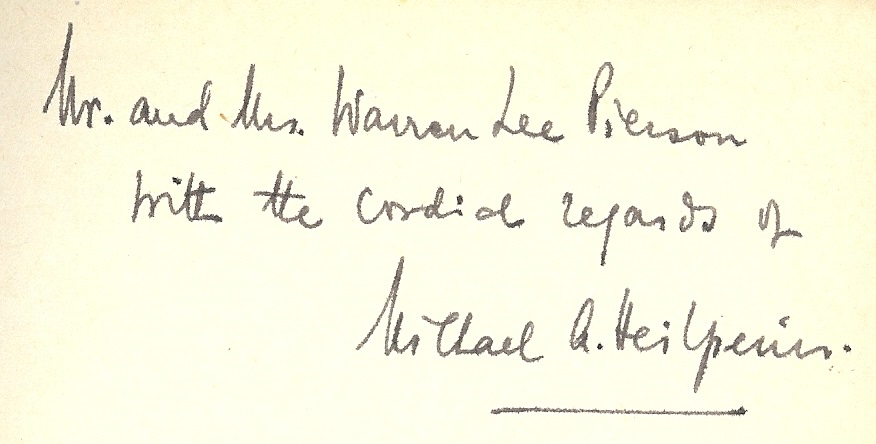 Mr. and Mrs. Warren Lee Pierson
with the cordial regards of
Michael A. Heilperin.